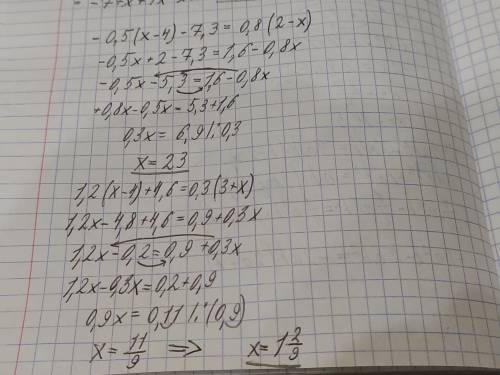 -0,5(x-4)-7,3=0,8(2-x)
-0,5x+2-7,3=1,6-0,8x
-0,5x-5,3=1,6-0,8x
+0,8x-0,5x=5,3+1,6
0,3x=6,9 |:0,3
x=23
1,2(x-4)+4,6=0,3(3+x)
1,2x-4,8+4,6=0,9+0,3x
1,2x-0,2=0,9+0,3x
1,2x-0,3x=0,2+0,9
0,9x=0,11 |:(0,9)
x=11/9 => x=1 2/9